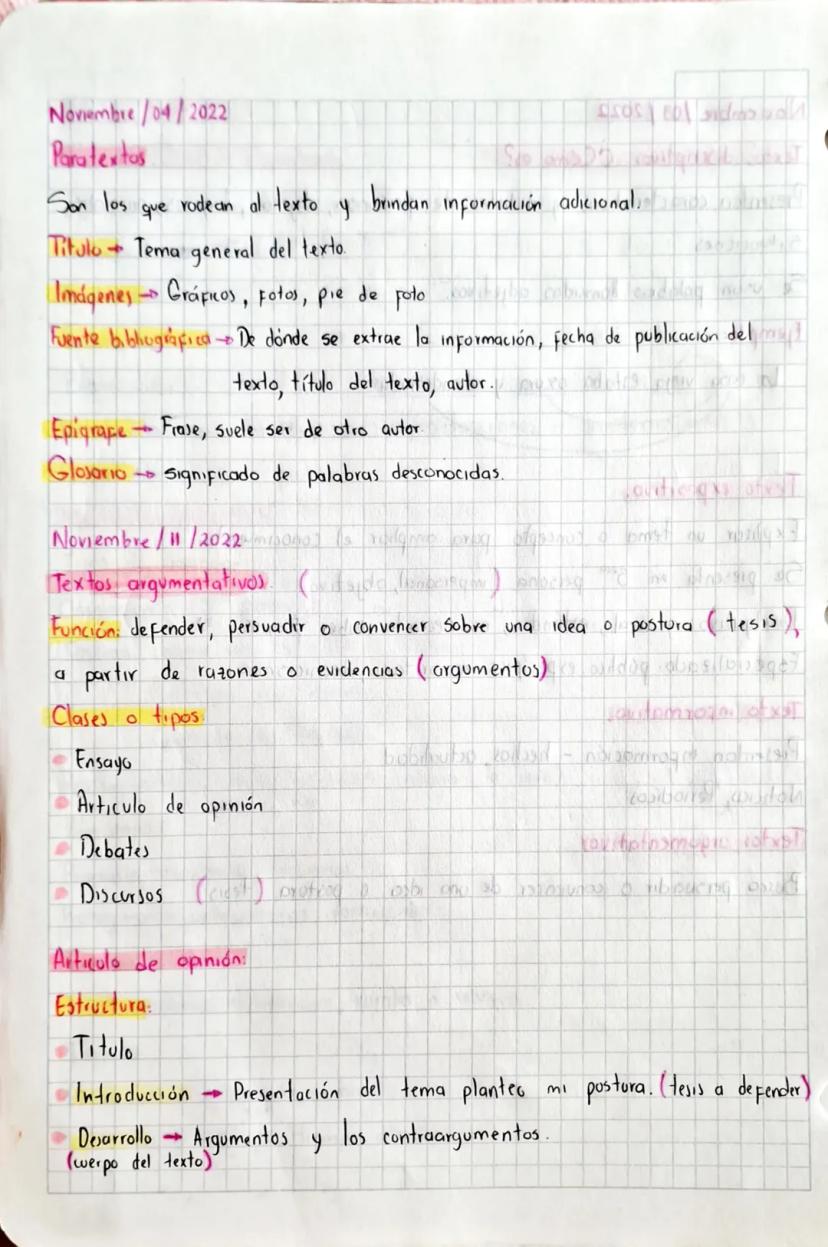 Noviembre/04/2022
Paratextos
Son los que rodean al texto y brindan información adicional.
Título → Tema general del texto.
Imágenes → Gráficos, fotos, pie de foto
Fuente bibliográfica → De dónde se extrae la información, fecha de publicación del
texto, título del texto, autor.
Epígrafe → Frase, suele ser de otro autor.
Glosario → significado de palabras desconocidas.
Noviembre/11/2022
Textos argumentativos.
Función: defender, persuadir o convencer sobre una idea o postura (tesis),
a partir de razones o evidencias (argumentos)
Clases o tipos
• Ensayo
• Artículo de opinión
• Debates
• Discursos
Artículo de opinión:
Estructura:
• Título
• Introducción → Presentación del tema planteo mi postura. (tesis a defender)
• Desarrollo → Argumentos y los contraargumentos.
(cuerpo del texto)